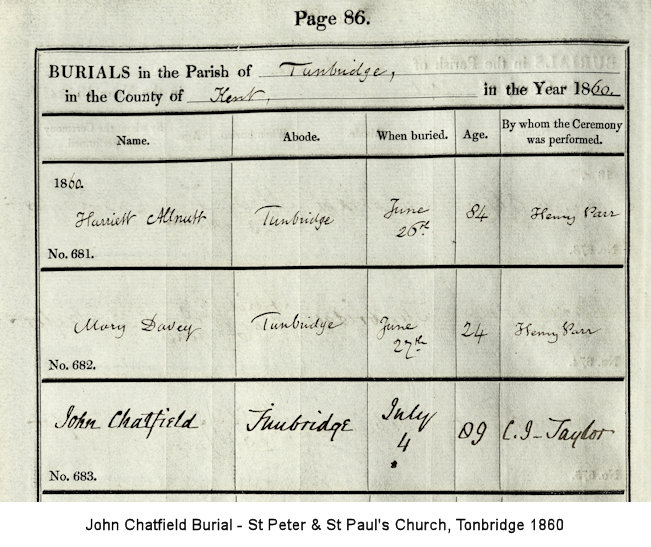 Page 86.
BURIALS in the Parish of Tunbridge,
in the County of Kent, in the Year 1860.
Name. Abode. When buried. Age. By whom the Ceremony was performed.
1860.
Harriett Allnutt Tunbridge June 26th 84 Henry Parr
No. 681.
Mary Davey Tunbridge June 27th 24 Henry Parr
No. 682.
John Chatfield Tunbridge July 4 89 C.I. Taylor
No. 683.
John Chatfield Burial - St Peter & St Paul's Church, Tonbridge 1860